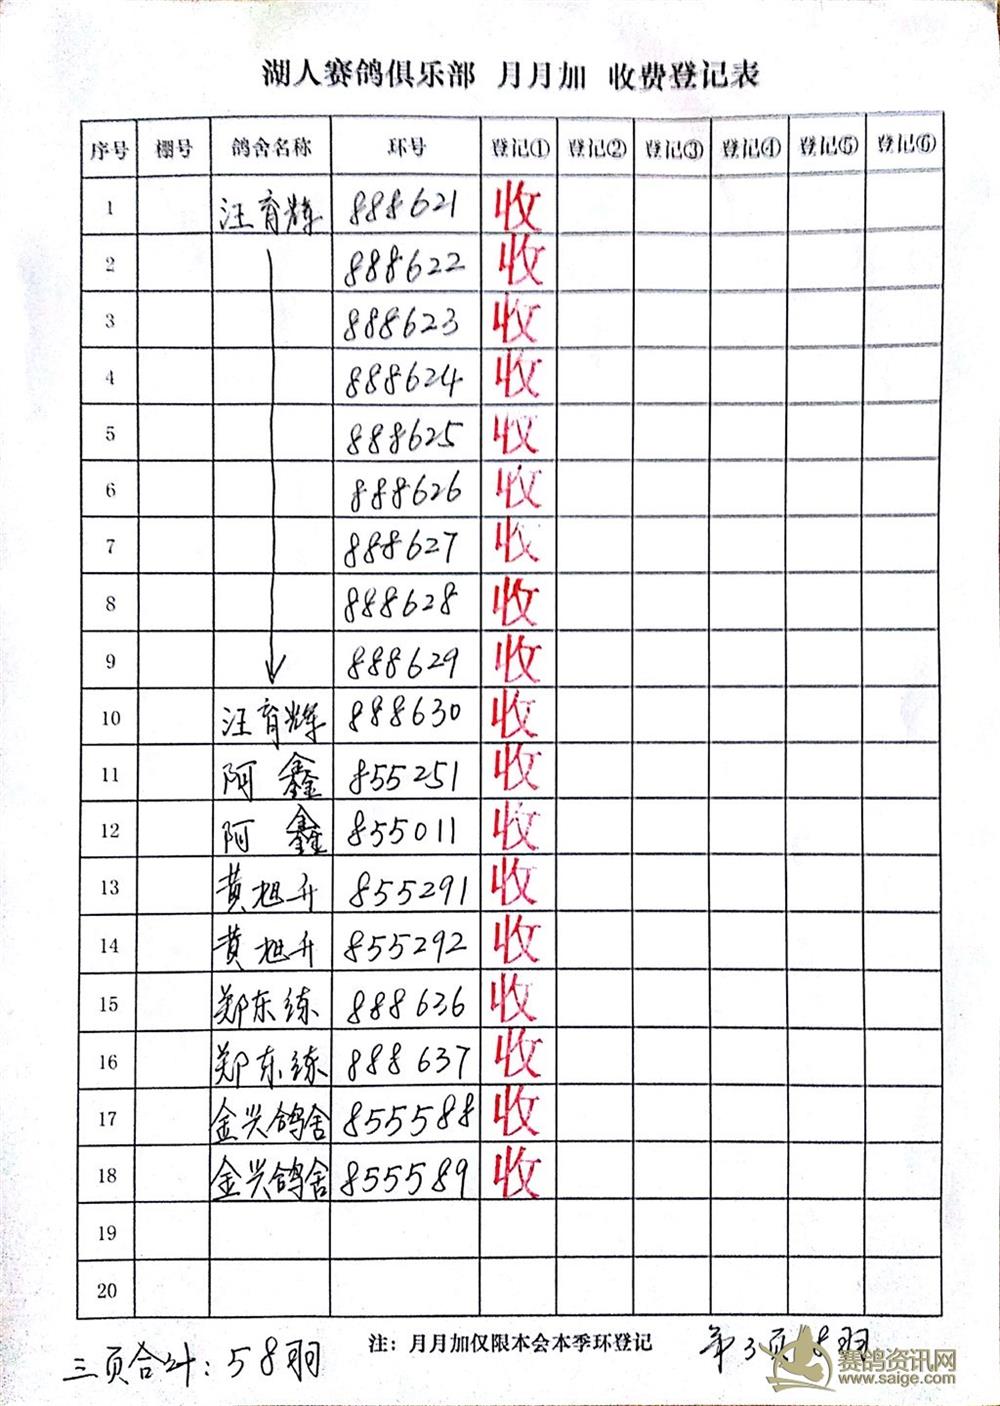 湖人赛鸽俱乐部 月月加 收费登记表
序号 棚号 鸽舍名称 环号 登记① 登记② 登记③ 登记④ 登记⑤ 登记⑥
1 汪育辉 888621 收
2 888622 收
3 888623 收
4 888624 收
5 888625 收
6 888626 收
7 888627 收
8 888628 收
9 888629 收
10 汪育辉 888630 收
11 阿鑫 855251 收
12 阿鑫 855011 收
13 黄旭升 855291 收
14 黄旭升 855292 收
15 郑东练 888636 收
16 郑东练 888637 收
17 金兴鸽舍 855588 收
18 金兴鸽舍 855589 收
19
20
注：月月加仅限本会本季环登记
三页合计：58羽
第3页18羽
赛鸽资讯网
www.saige.com